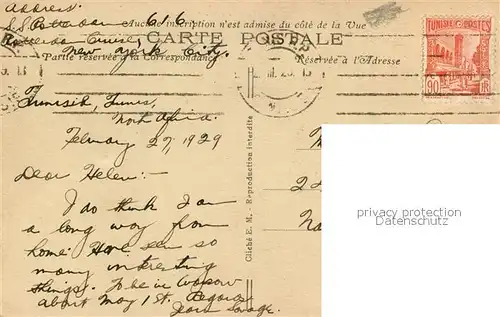 Address:
Aucune inscription n'est admise du côté de la Vue
S.S. Rotterdam
CARTE POSTALE
Cruise
New York City.
Partie réservée à la Correspondance
Réservée à l'Adresse
TUNISIE POSTES
90
Tunis,
North Africa.
February 27, 1929
Dear Helen:-
I do think I am
a long way from
home. Have seen so
many interesting
things. To be in
about May 1st.
Jean Savage.
Cliché E. M. - Reproduction interdite
proxy protection
watermark